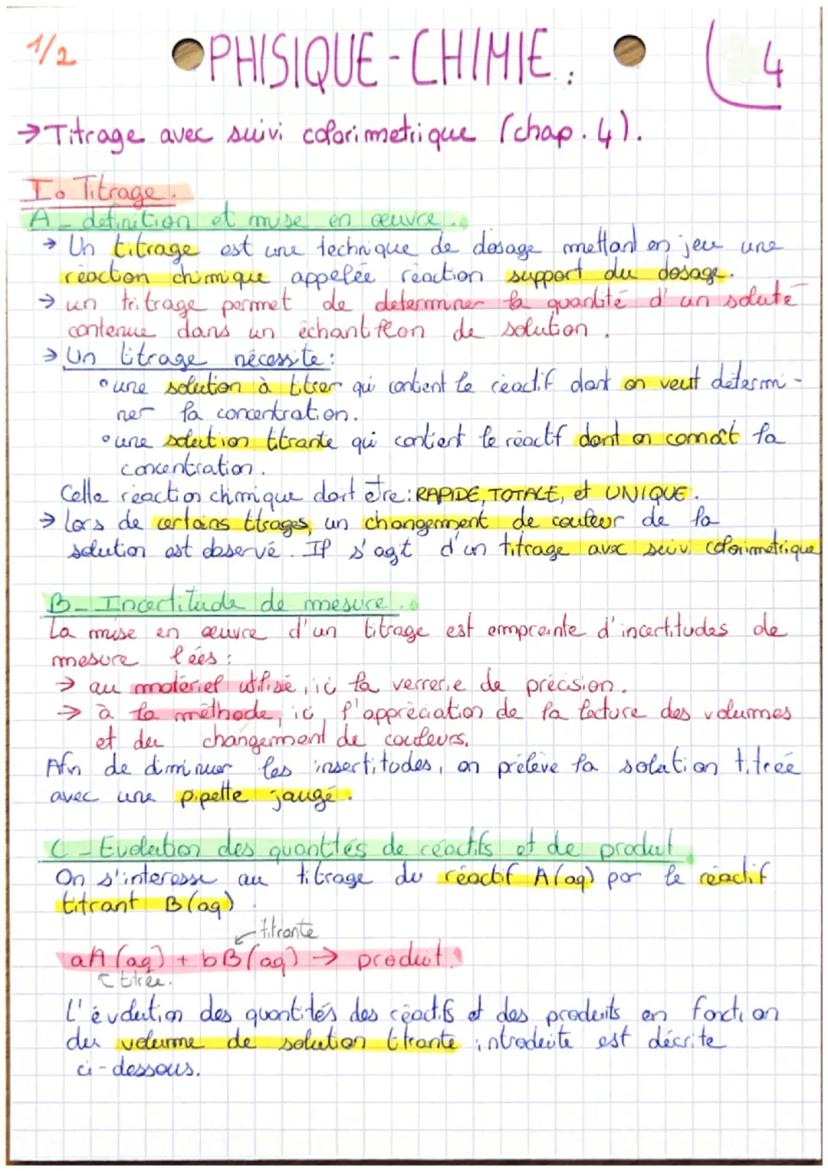 1/2 PHISIQUE-CHIMIE. 4
→ Titrage avec suivi colorimetrique (chap. 4).
I. Titrage.
A - definition et mise en œuvre.
→ Un titrage est une technique de dosage mettant en jeu une
réaction chimique appelée réaction support du dosage.
→ un tritrage permet de determiner la quantité d'un soluté
contenue dans un échantillon de solution.
→ Un titrage nécessite:
• une solution à titrer qui contient le réactif dont on veut détermi-
ner la concentration.
• une solution titrante qui contient le réactif dont on connaît la
concentration.
Cette réaction chimique doit être: RAPIDE, TOTALE, et UNIQUE.
→ Lors de certains titrages, un changement de couleur de la
solution est observé. Il s'agit d'un titrage avec suivi colorimetrique
B - Incertitude de mesure.
La mise en œuvre d'un titrage est empreinte d'incertitudes de
mesure liées:
→ au matériel utilisé, ici la verrerie de précision.
→ à la méthode, ici l'appréciation de la lecture des volumes
et du changement de couleurs.
Afin de diminuer les insertitudes, on prélève la solution titrée
avec une pipette jaugé.
C - Evolution des quantités de réactifs et de produit
On s'interesse au titrage du réactif A(aq) par le réactif
titrant B(aq)
titrante
aA(aq) + bB(aq) → produit.
titrée.
L'évolution des quantités des réactifs et des produits en fonction
du volume de solution titrante introduite est décrite
ci-dessous.